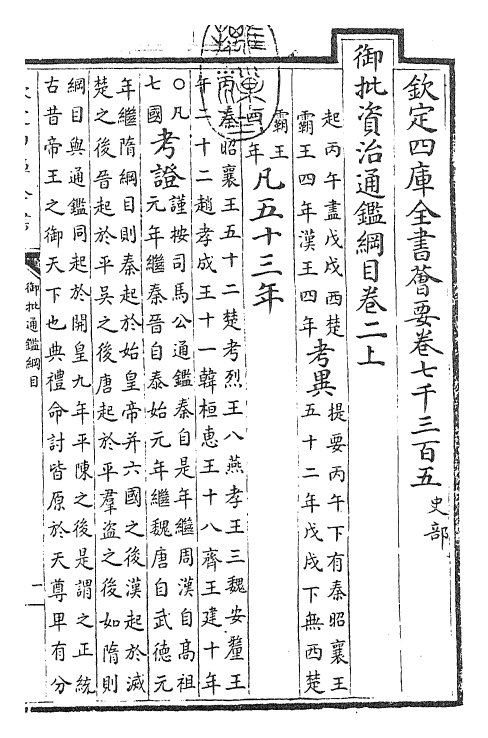 欽定四庫全書薈要卷七千三百五 史部
御批資治通鑑綱目卷二上
起丙午盡戊戌西楚
霸王四年漢王四年
考異
提要丙午下有秦昭襄王
五十二年戊戌下無西楚
霸王
年
凡五十三年
丙秦昭襄王五十二楚考烈王八燕孝王三魏安釐王
午二十二趙孝成王十一韓桓惠王十八齊王建十年
○凡
七國
考證
謹按司馬公通鑑秦自是年繼周漢自髙祖
元年繼秦晉自泰始元年繼魏唐自武徳元
年繼隋綱目則秦起於始皇帝并六國之後漢起於滅
楚之後晉起於平吳之後唐起於平羣盗之後如隋則
綱目與通鑑同起於開皇九年平陳之後是謂之正統
古昔帝王之御天下也典禮命討皆原於天尊卑有分
御批通鑑綱目